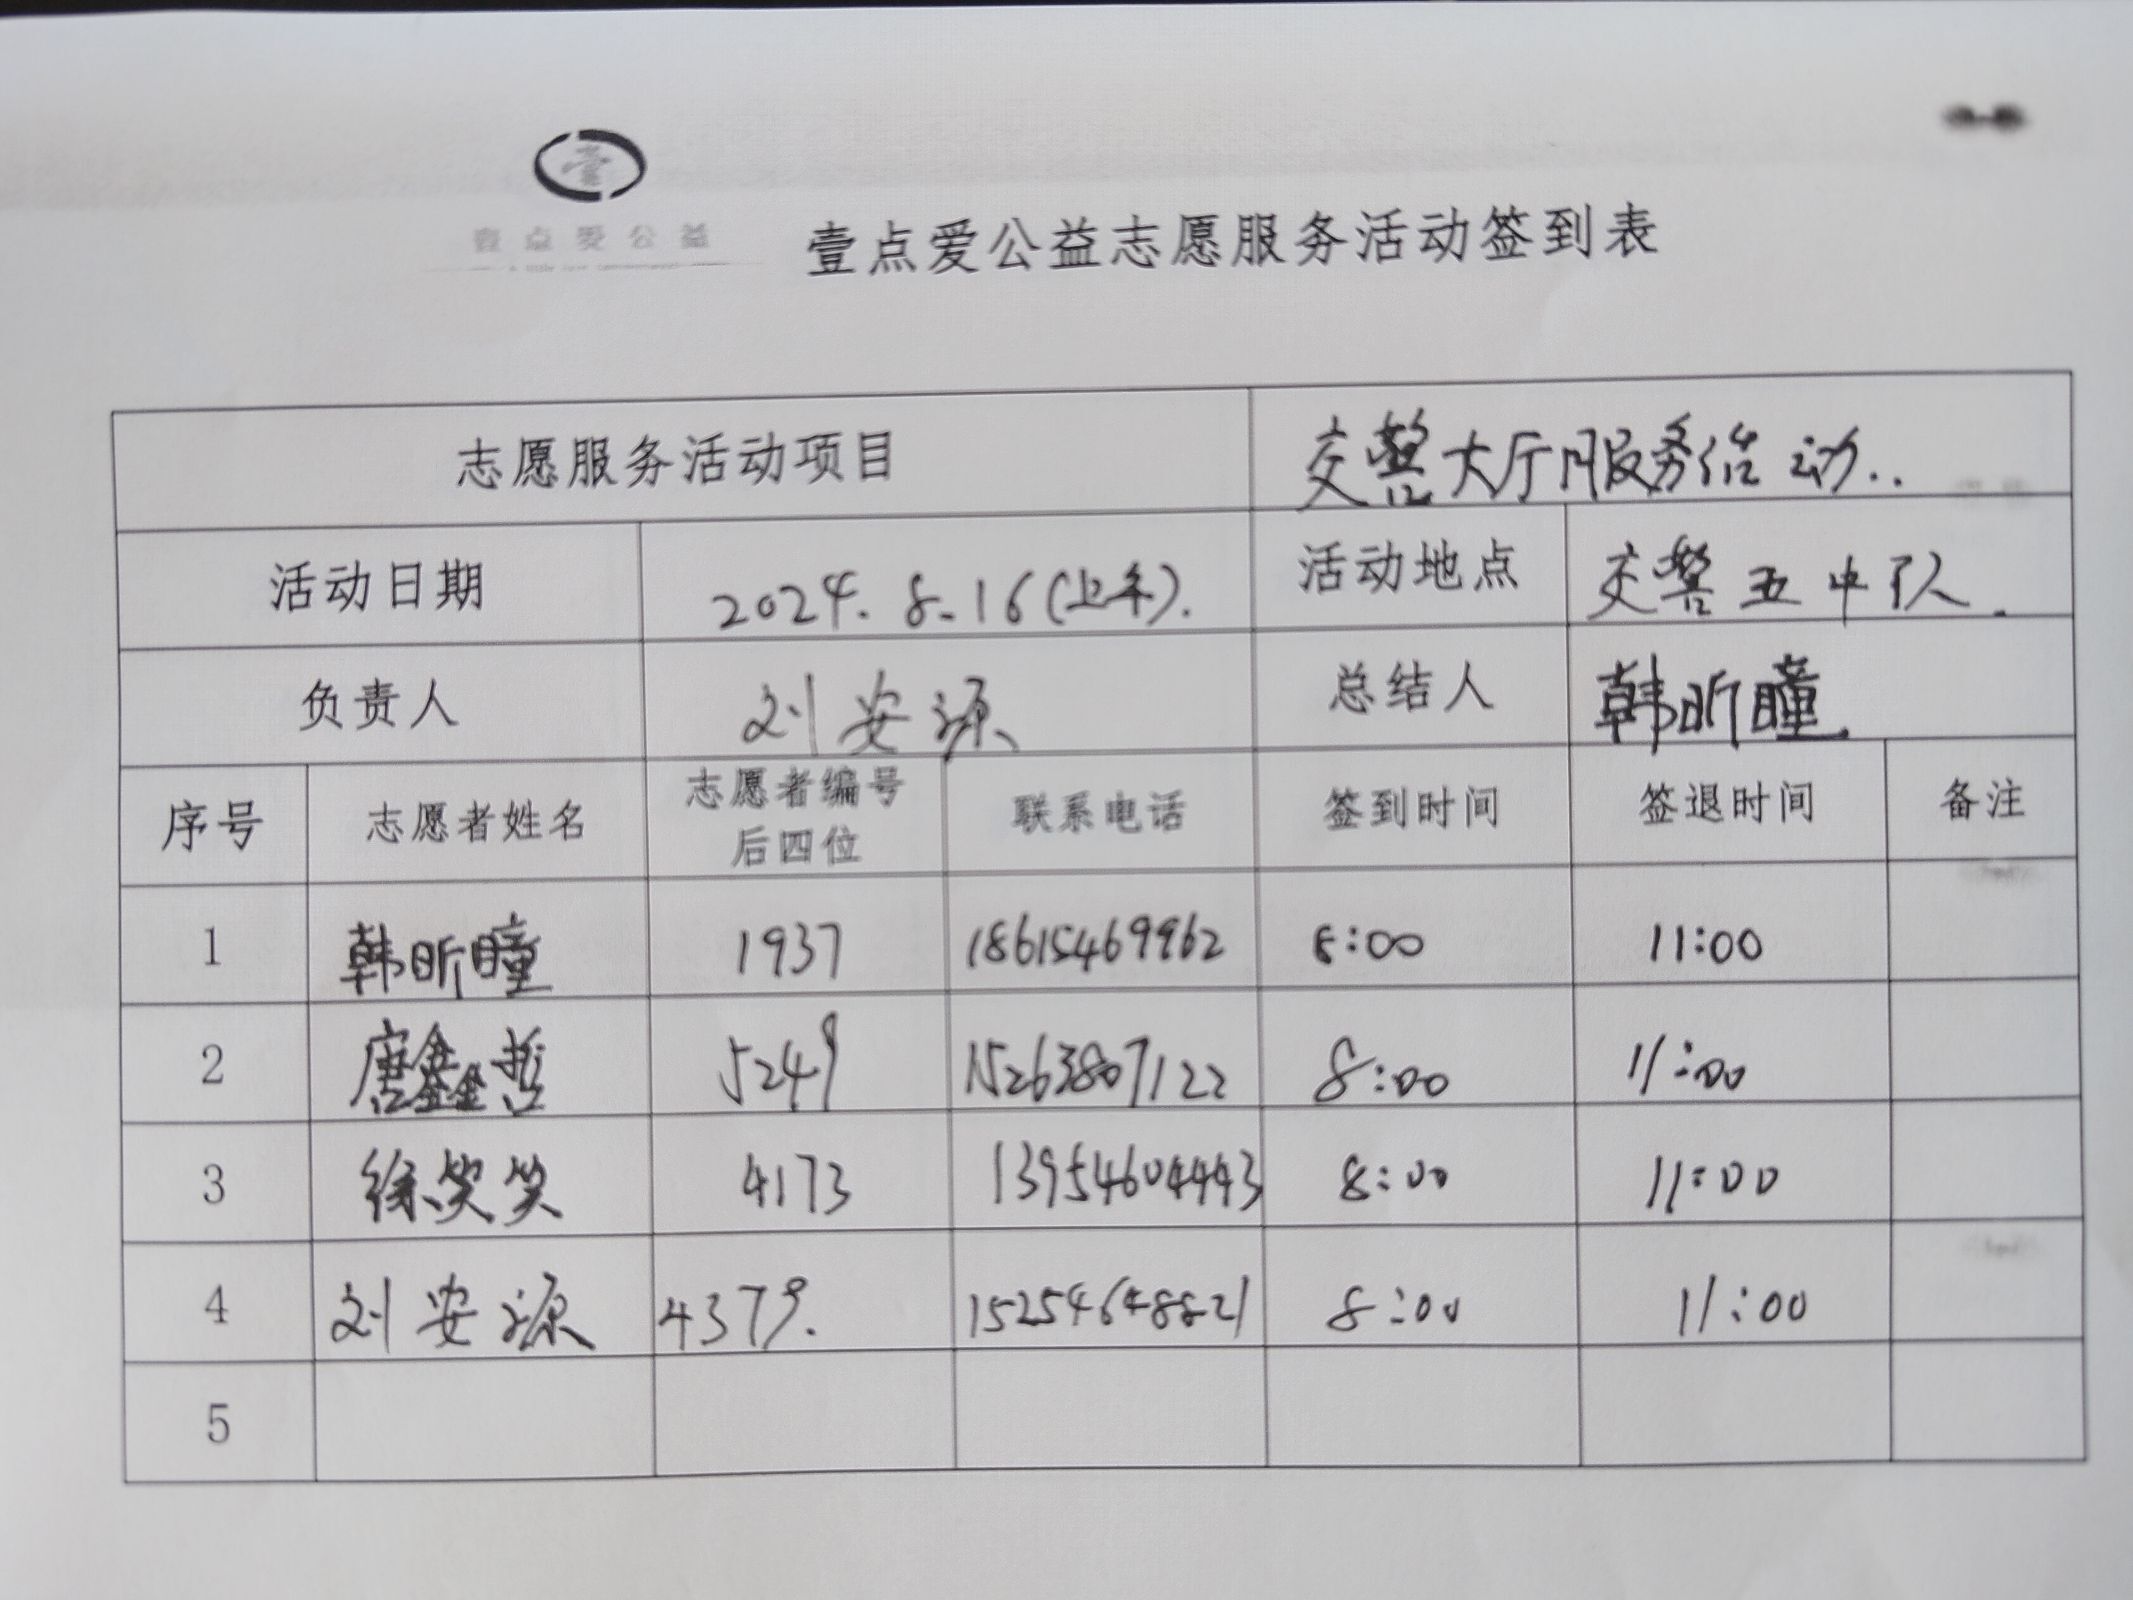 壹
壹点爱公益
壹点爱公益志愿服务活动签到表
志愿服务活动项目 交警大厅服务活动..
活动日期 2024.8.16(上午). 活动地点 交警五中队.
负责人 刘安源 总结人 韩昕瞳.
序号 志愿者姓名 志愿者编号 联系电话 签到时间 签退时间 备注
后四位
1 韩昕瞳 1937 18615469962 8:00 11:00
2 唐鑫哲 5249 15263807122 8:00 11:00
3 徐笑笑 4173 13954604443 8:00 11:00
4 刘安源 4379. 15254648821 8:00 11:00
5